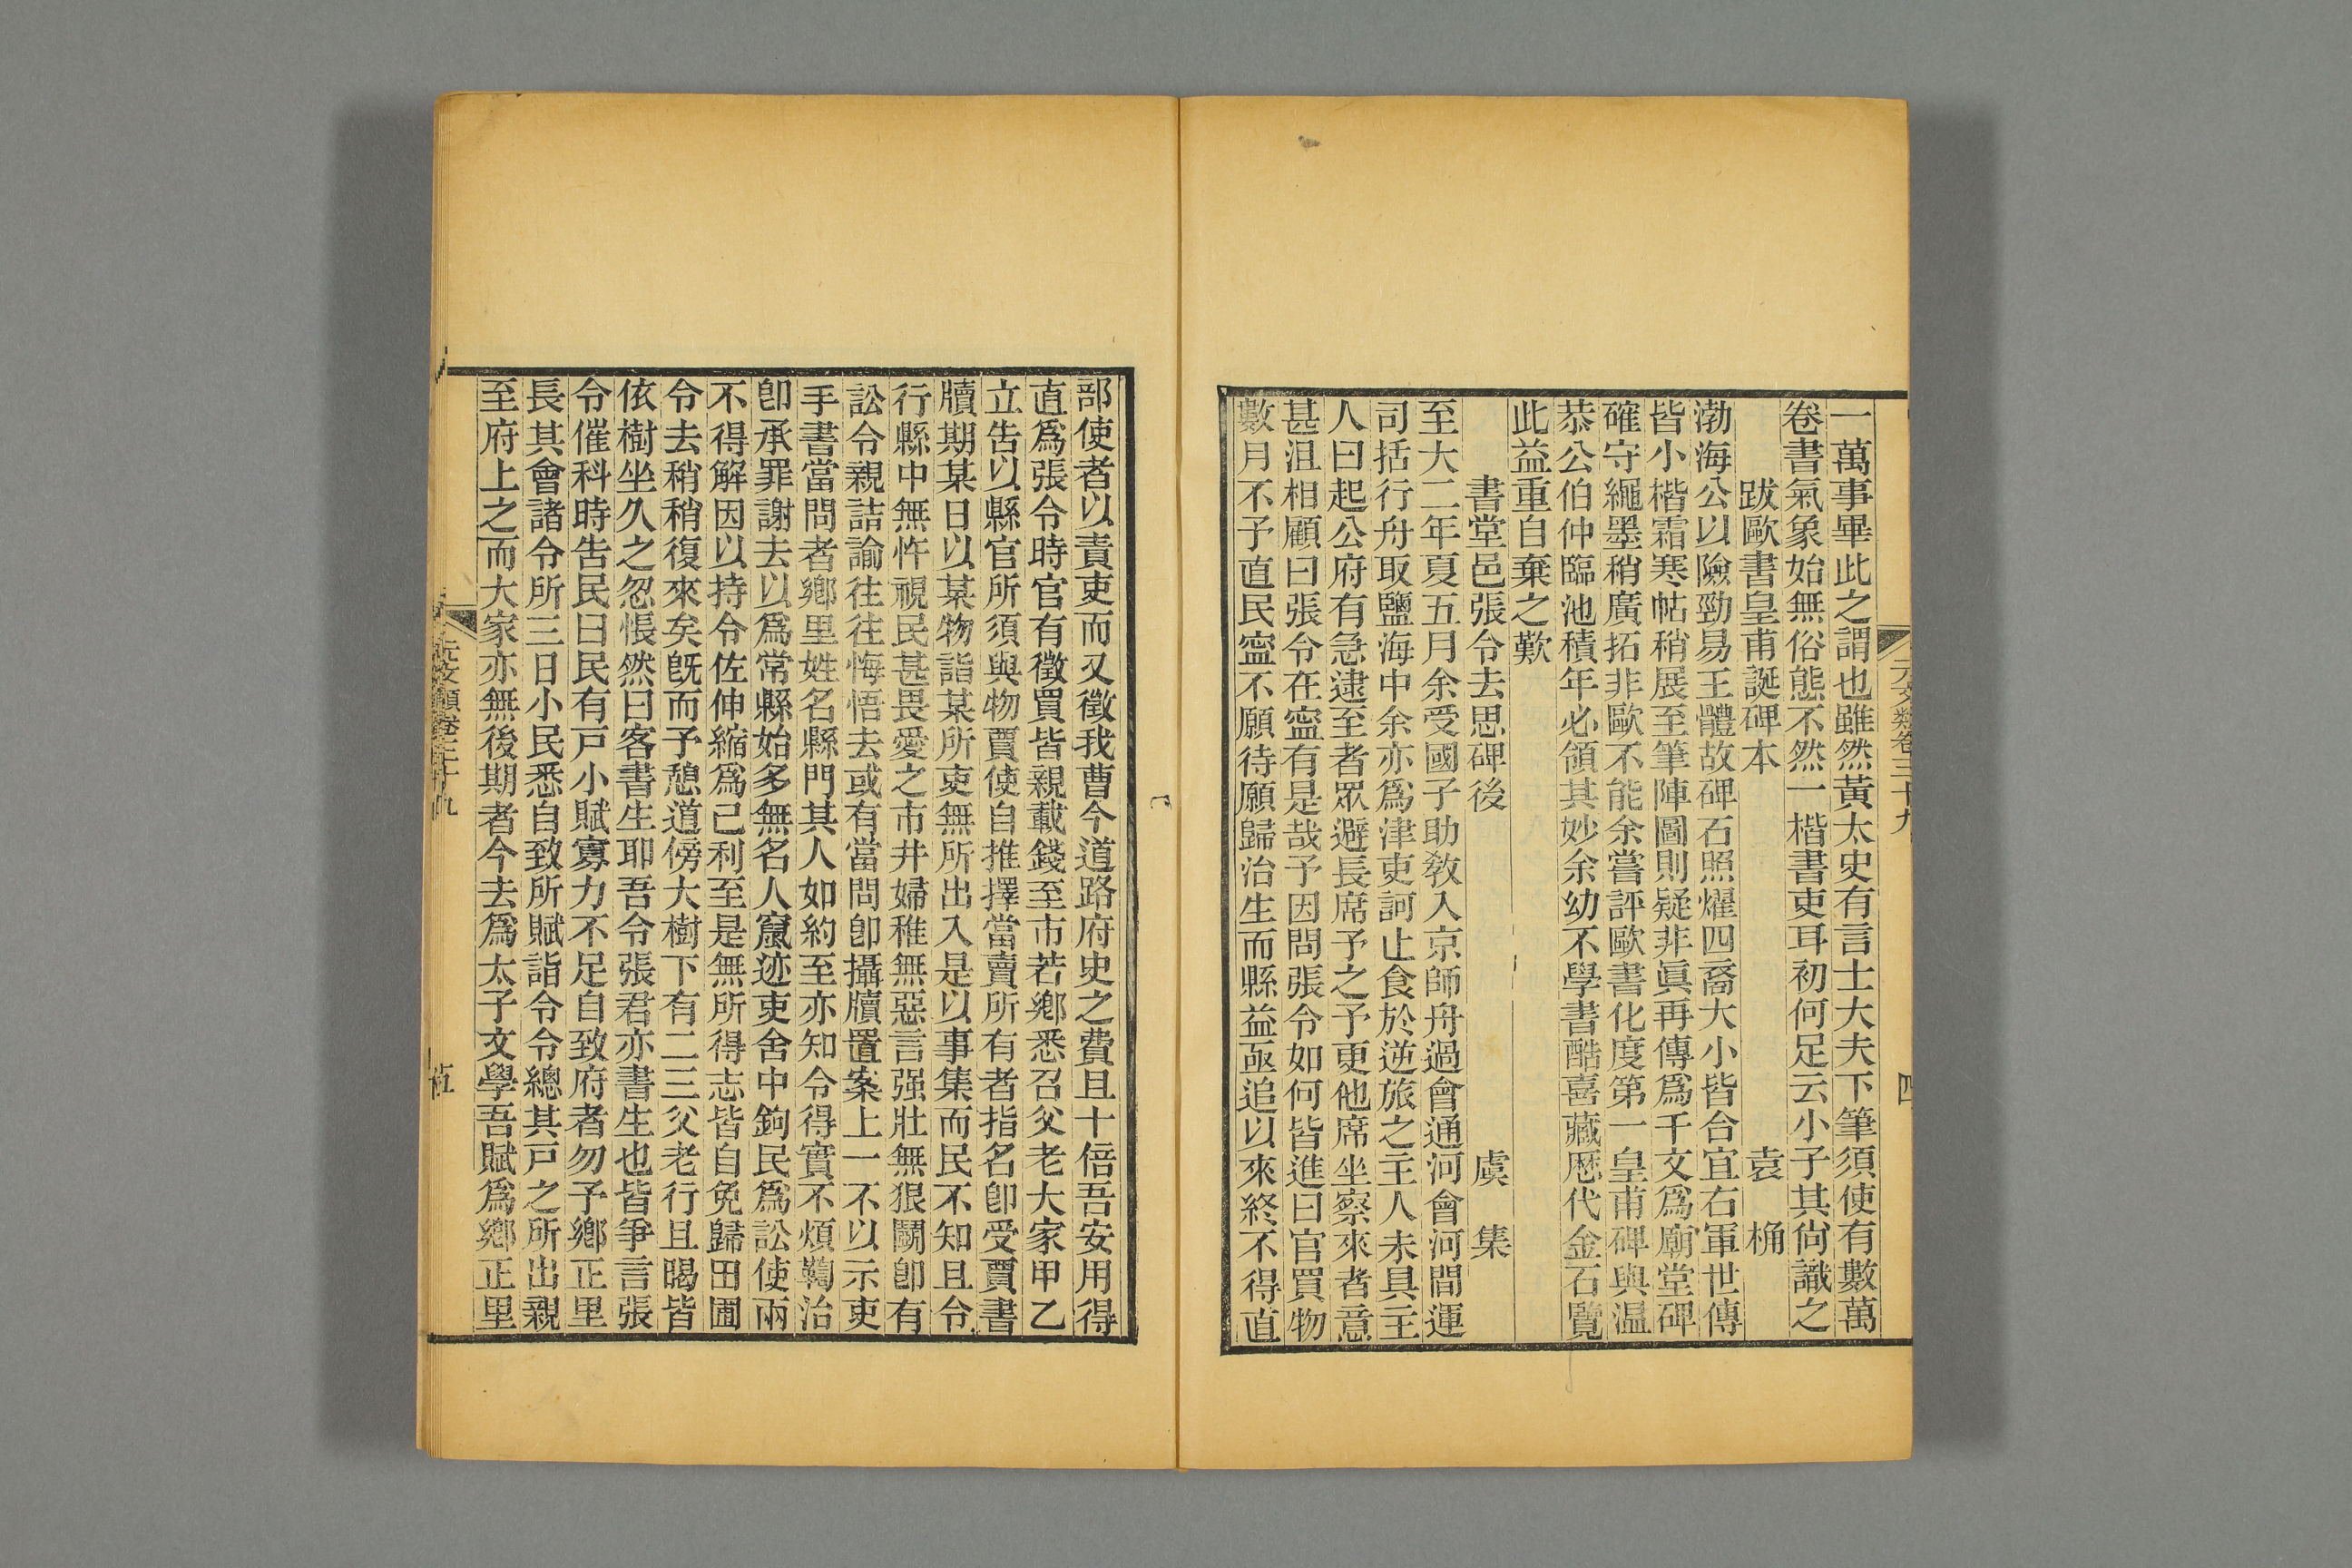 元文類卷三十九
四
一萬事畢此之謂也雖然黃太史有言士大夫下筆須使有數萬
卷書氣象始無俗態不然一楷書吏耳初何足云小子其尙識之
跋歐書皇甫誕碑本 袁桷
渤海公以險勁易王體故碑石照燿四裔大小皆合宜右軍世傳
皆小楷霜寒帖稍展至筆陣圖則疑非眞再傳爲千文爲廟堂碑
確守繩墨稍廣拓非歐不能余嘗評歐書化度第一皇甫碑與温
恭公伯仲臨池積年必領其妙余幼不學書酷喜藏厯代金石覽
此益重自棄之歎
書堂邑張令去思碑後 虞集
至大二年夏五月余受國子助敎入京師舟過會通河會河間運
司括行舟取鹽海中余亦爲津吏訶止食於逆旅之主人未具主
人曰起公府有急逮至者眾避長席予之予更他席坐察來者意
甚沮相顧曰張令在寍有是哉予因問張令如何皆進曰官買物
數月不予直民寍不願待願歸治生而縣益亟追以來終不得直
部使者以責吏而又徵我曹今道路府史之費且十倍吾安用得
直爲張令時官有徵買皆親載錢至市若鄕悉召父老大家甲乙
立告以縣官所須與物賈使自推擇當賣所有者指名卽受賈書
牘期某日以某物詣某所吏無所出入是以事集而民不知且令
行縣中無忤視民甚畏愛之市井婦稚無惡言强壯無狠鬬卽有
訟令親詰諭往往悔悟去或有當問卽攝牘置案上一不以示吏
手書當問者鄕里姓名縣門其人如約至亦知令得實不煩鞫治
卽承罪謝去以爲常縣始多無名人竄迹吏舍中鉤民爲訟使兩
不得解因以持令佐伸縮爲己利至是無所得志皆自免歸田圃
令去稍稍復來矣旣而予憩道傍大樹下有二三父老行且暍皆
依樹坐久之忽悵然曰客書生耶吾令張君亦書生也皆爭言張
令催科時告民曰民有戸小賦寡力不足自致府者勿予鄕正里
長其會諸令所三日小民悉自致所賦詣令令總其戸之所出親
至府上之而大家亦無後期者今去爲太子文學吾賦爲鄕正里
元文類卷三十九
五